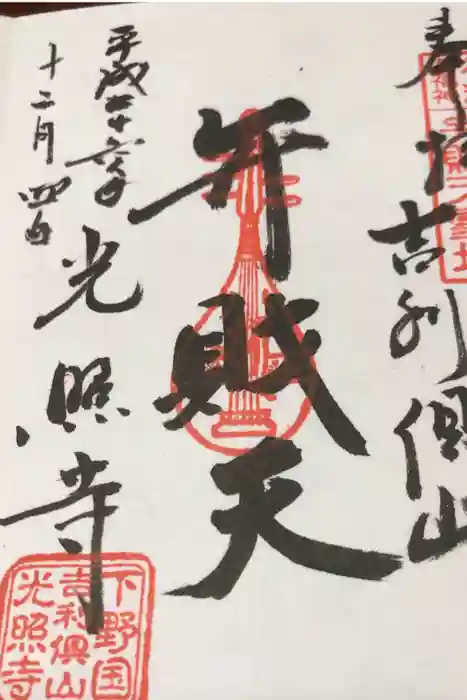 奉拝
吉利倶山
弁財天
平成二十六年
十二月四日
光照寺
下野国
吉利倶山
光照寺